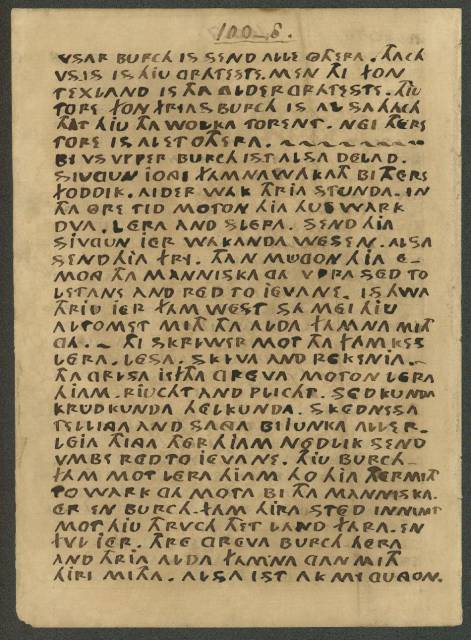 100_8.
VSAR BURCH IS SEND ALLE OTHERA. THACH
VS.IS IS THIU GRATESTE. MEN THI FON
TEXLAND IS THA ALDERGRATESTE. THIU
TORE FON FRIAS BURCH IS ALSA HACH
THAT THIU THA WOLKA TORENT. NEI THERE
TORE IS AL ET OTHERA.
BI VS VPPER BURCH IST ALSA DELAD.
SIUGUN IONG FAMNA WAKATH BI THERE
FODDIK. AIDER WAK THRIA STUNDA. IN
THA ORE TID MOTON HIA HUS WARK
DVA. LERA AND SLEPA. SEND HIA
SIVGUN IER WAKANDA WESEN. ALSA
SEND HIA FRY. THAN MUGON HIA E-
MONG THA MANNISKA GA VPRA SED TO
LETANE AND RED TO IEVANE. IS HWA
THRIU IER FAM WEST SA MEI HIU
ALTOMET MITH THA ALDA FAMNA MITH
GA. ~ THI SKRIWER MOT THA FAM.KES
LERA. LESA. SKIVA AND REKENIA.
THA GRISA IEFTHA GREVA MOTON LERA
HIAM. RIUCHT AND PLICHT. SEDKUNDA
KRUDKUNDA HELKUNDA. SKEDNSSA
TELLINGA AND SANGA BIIUNKA ALLER-
LEIA THINGA THER HIAM NEDLIK SEND
VMBE RED TO IEVANE. THIU BURCH-
FAM MOT LERA HIAM HO HIA THERMITH
TO WARK GA MOTA BI THA MANNISKA.
ER EN BURCH-FAM HIRA STED INNIMT
MOT HIU THRVCH THET LAND FARA. EN
FUL IER. THRE GREVA BURCH HERA
AND THRIA ALDA FAMNA GAN MITH
HIRI MITHA. ALSA IST AK MY GVGON.